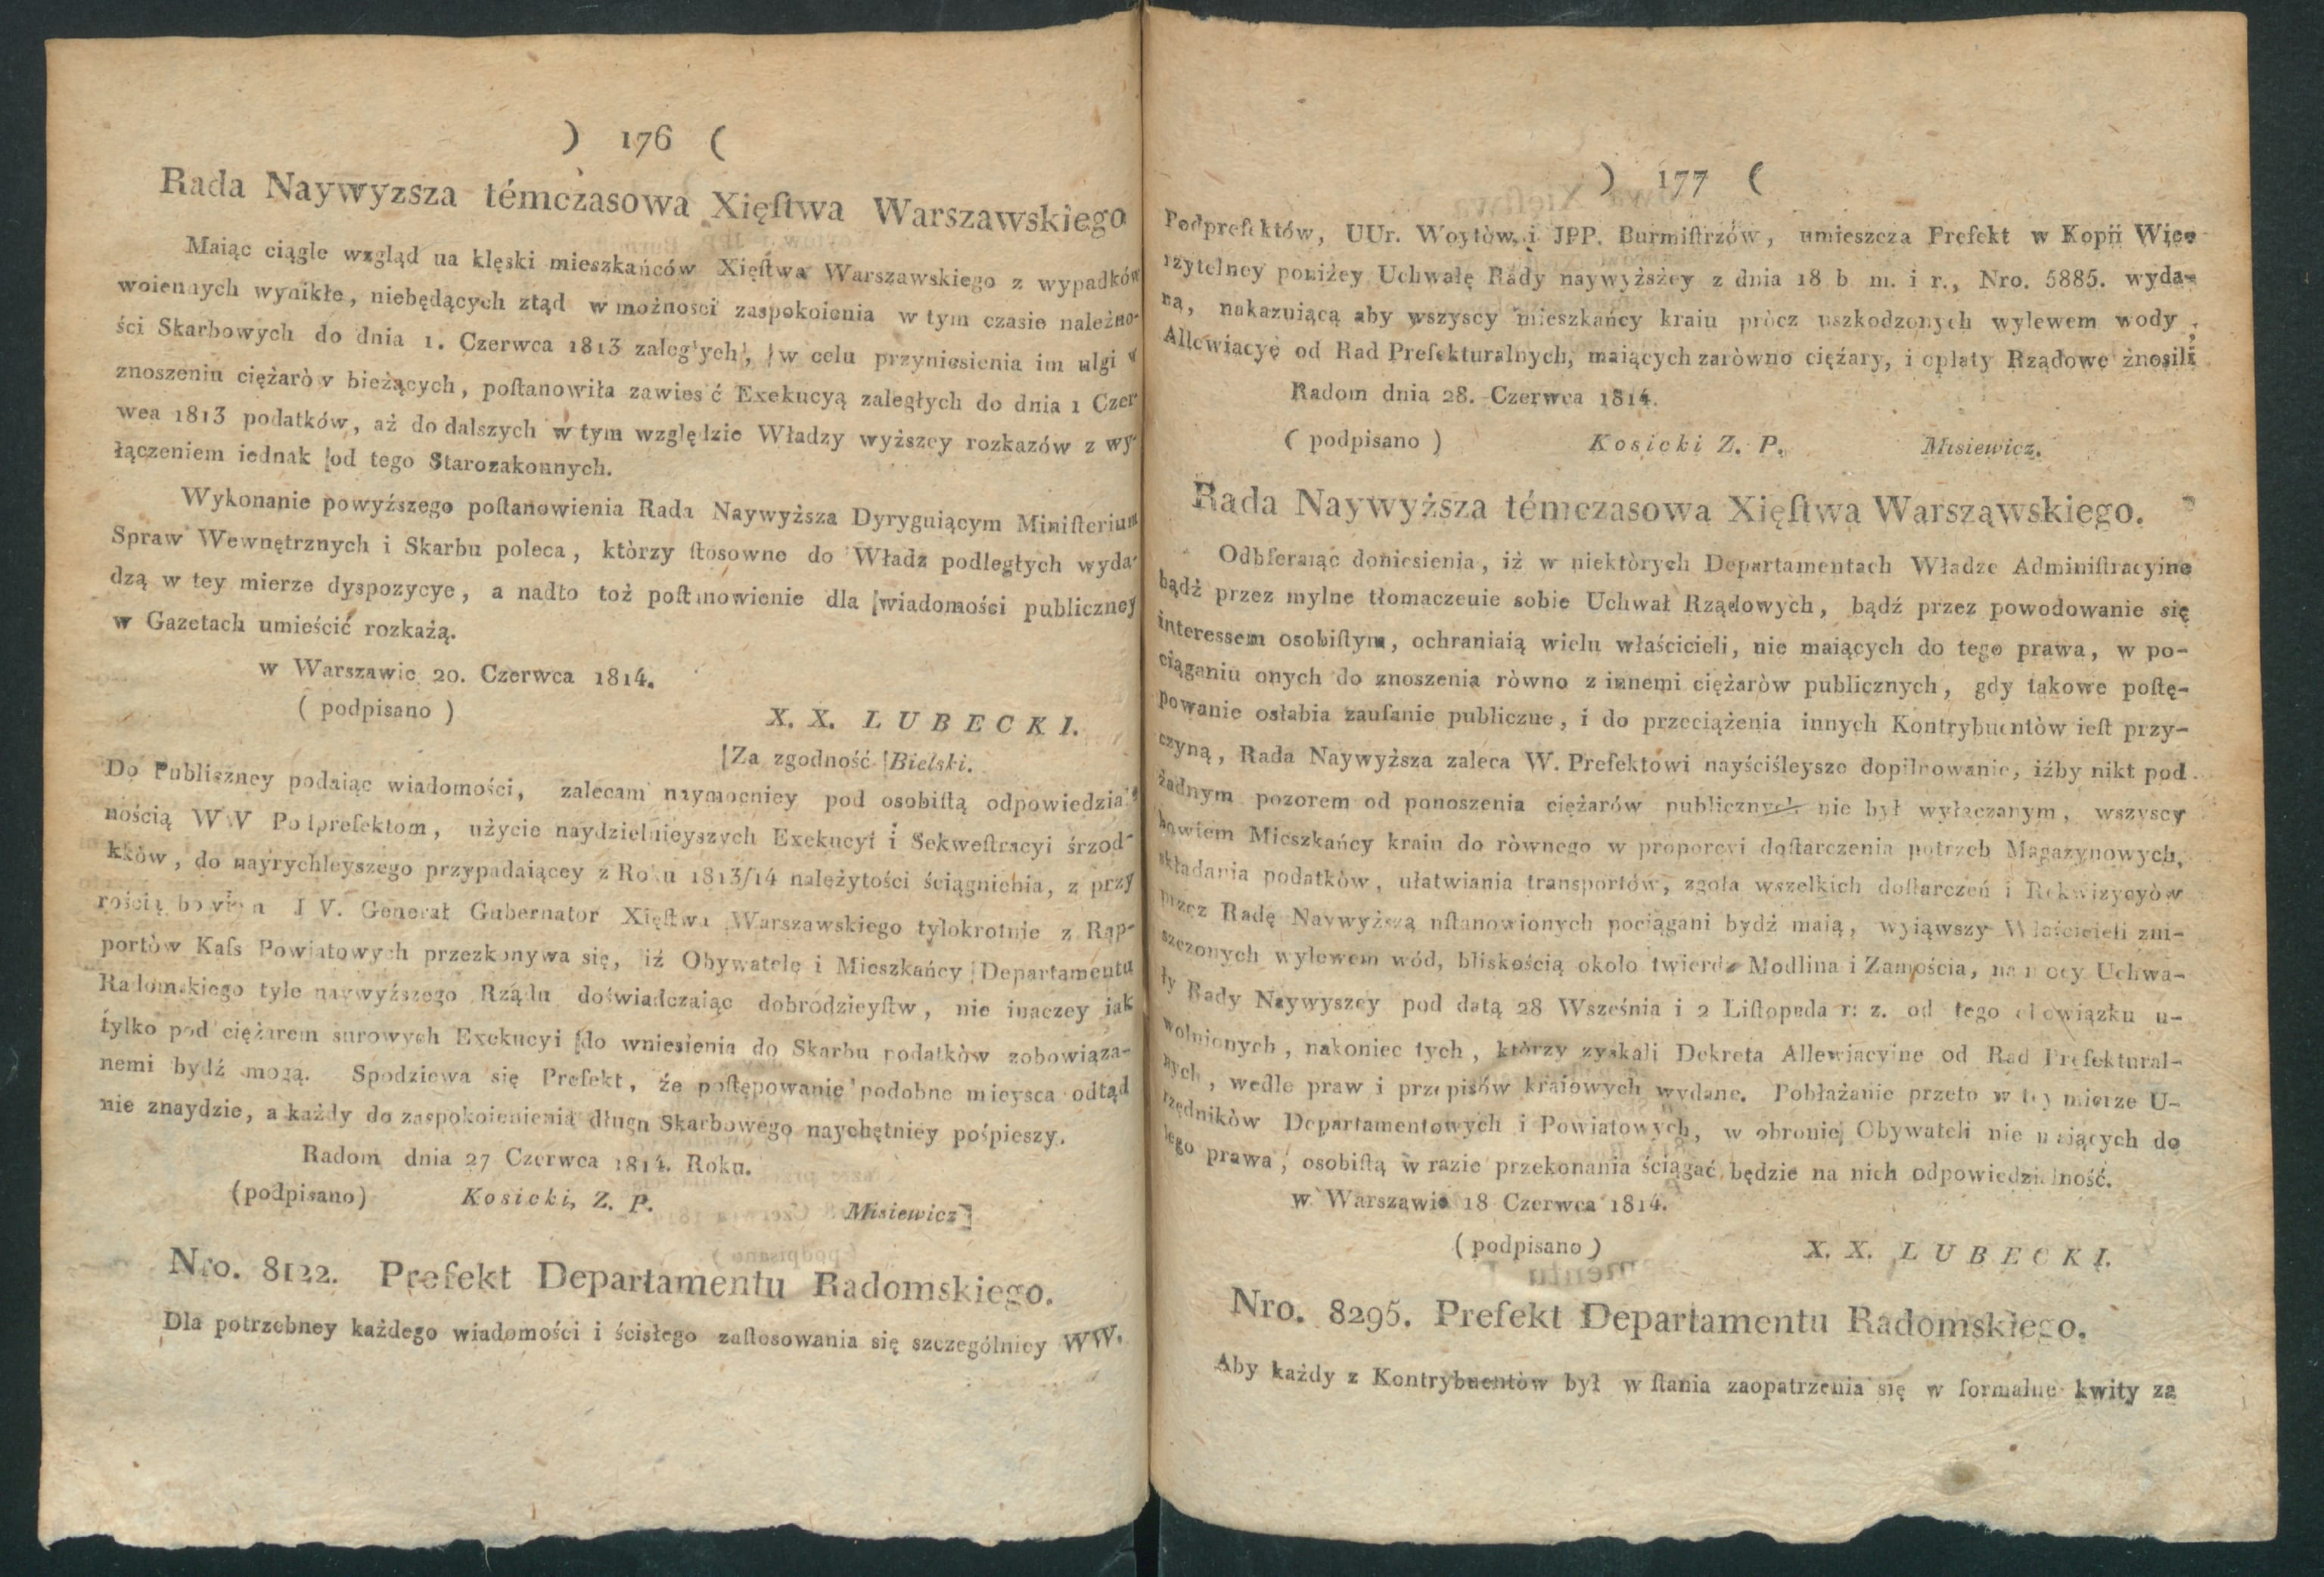 ) 176 (
Rada Naywyzsza témczasowa Xięſtwa Warszawskiego
Maiąc ciągle wzgląd na klęski mieszkańców Xięſtwa Warszawskiego z wypadków
woiennych wynikłe, niebędących ztąd w możnosci zaspokoienia w tym czasie należno-
ści Skarbowych do dnia 1. Czerwca 1813 zaległych, w celu przyniesienia im ulgi w
znoszeniu ciężaròw bieżących, poſtanowiła zawiesić Exekucyą zaległych do dnia 1 Czer-
wca 1813 podatków, aż do dalszych w tym względzie Władzy wyższey rozkazów z wy-
łączeniem iednak od tego Starozakonnych.
Wykonanie powyższego poſtanowienia Rada Naywyższa Dyryguiącym Miniſterium
Spraw Wewnętrznych i Skarbu poleca, którzy ſtosowne do Władz podległych wyda-
dzą w tey mierze dyspozycye, a nadto toż poſtanowienie dla wiadomości publiczney
w Gazetach umieścić rozkażą.
w Warszawie 20. Czerwca 1814.
( podpisano )
X. X. LUBECKI.
Za zgodność Bielski.
Do Publiczney podaiąc wiadomości, zalecam naymocniey pod osobiſtą odpowiedzial-
nością WW Podprefektom, użycie naydzielnieyszych Exekucyi i Sekweſtracyi śrzod-
kków, do nayrychleyszego przypadaiącey z Roku 1813/14 należytości ściągnienia, z przy
rością bowiem J W. Generał Gubernator Xięſtwa Warszawskiego tylokrotnie z Rap-
portòw Kaſs Powiatowych przezkonywa się, iż Obywatele i Mieszkańcy Departamentu
Radomskiego tyle naywyższego Rządu doświadczaiąc dobrodzieyſtw, nie inaczey iak
tylko pod ciężarem surowych Exekucyi do wniesienia do Skarbu podatkòw zobowiąza-
nemi bydź mogą. Spodziewa się Prefekt, że poſtępowanie podobne mieysca odtąd
nie znaydzie, a każdy do zaspokoienienia długu Skarbowego naychętniey pośpieszy.
Radom dnia 27 Czerwca 1814. Roku.
(podpisano) Kosicki, Z. P. Misiewicz
Nro. 8122. Prefekt Departamentu Radomskiego.
Dla potrzebney każdego wiadomości i ścisłego zaſtosowania się szczególniey WW.
) 177 (
Podprefektów, UUr. Woytòw, i JPP. Burmiſtrzów, umieszcza Prefekt w Kopii Wie-
rzytelney poniżey Uchwałę Rady naywyższey z dnia 18 b m. i r., Nro. 5885. wyda-
ną, nakazuiącą aby wszyscy mieszkańcy kraiu pròcz uszkodzonych wylewem wody,
Allewiacye od Rad Prefekturalnych, maiących zaròwno ciężary, i opłaty Rządowe żnosili;
Radom dnia 28. Czerwca 1814.
( podpisano ) Kosicki Z. P. Misiewicz.
Rada Naywyższa témczasowa Xięſtwa Warszawskiego.
Odbieraiąc doniesienia, iż w niektòrych Departamentach Władze Adminiſtracyine
bądź przez mylne tłomaczenie sobie Uchwał Rządowych, bądź przez powodowanie się
interessem osobiſtym, ochraniaią wielu właścicieli, nie maiących do tego prawa, w po-
ciąganiu onych do znoszenia ròwno z innemi ciężaròw publicznych, gdy takowe poſtę-
powanie osłabia zaufanie publiczne, i do przeciążenia innych Kontrybuentòw ieſt przy-
czyną, Rada Naywyższa zaleca W. Prefektowi nayściśleysze dopilnowanie, iżby nikt pod
żadnym pozorem od ponoszenia ciężarów publicznych nie był wyłączanym, wszyscy
bowiem Mieszkańcy kraiu do ròwnego w proporcyi doſtarczenia potrzeb Magazynowych,
składania podatków, ułatwiania transportów, zgoła wszelkich doſtarczeń i Rekwizycyòw
przez Radę Naywyższą uſtanowionych pociągani bydź maią, wyiąwszy Właścicieli zni-
szczonych wylewem wód, bliskością około twierdz Modlina i Zamościa, na mocy Uchwa-
ły Rady Naywyszey pod datą 28 Wsześnia i 2 Liſtopada r: z. od tego obowiązku u-
wolnionych, nakoniec tych, którzy zyskali Dekreta Allewiacyine od Rad Prefektural-
nych, wedle praw i przepisów kraiowych wydane. Pobłażanie przeto w tey mierze U-
rzędników Departamentowych i Powiatowych, w obronie Obywateli nie maiących do
tego prawa, osobiſtą w razie przekonania ściągać będzie na nich odpowiedzialność.
w Warszawie 18 Czerwca 1814.
( podpisano ) X. X. LUBECKI.
Nro. 8295. Prefekt Departamentu Radomskiego.
Aby każdy z Kontrybuentòw był w ſtania zaopatrzenia się w formalne kwity za